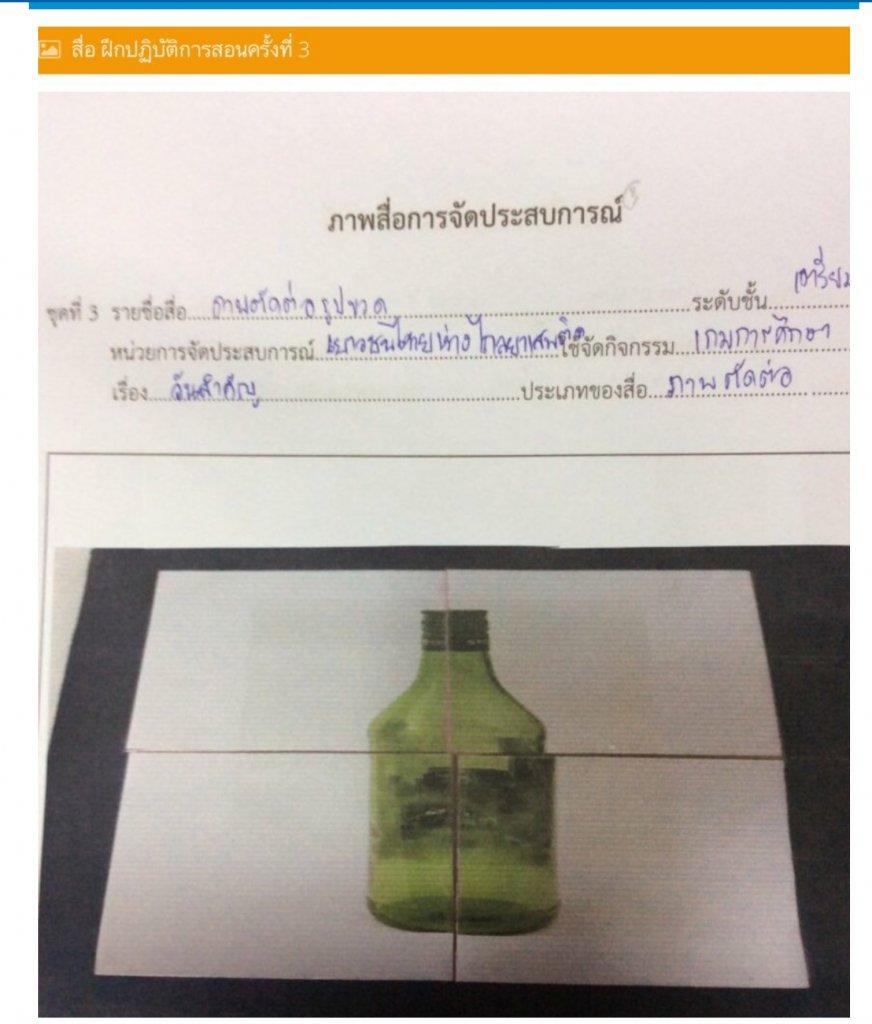 สื่อ ฝึกปฏิบัติการสอนครั้งที่ 3
ภาพสื่อการจัดประสบการณ์
ชุดที่ 3 รายชื่อสื่อ...ภาพตัดต่อรูปขวด...ระดับชั้น...เตรียม
หน่วยการจัดประสบการณ์ เยาวชนไทยห่างไกลยาเสพติด ใช้จัดกิจกรรม...เกมการศึกษา
เรื่อง...วันสำคัญ...ประเภทของสื่อ...ภาพตัดต่อ